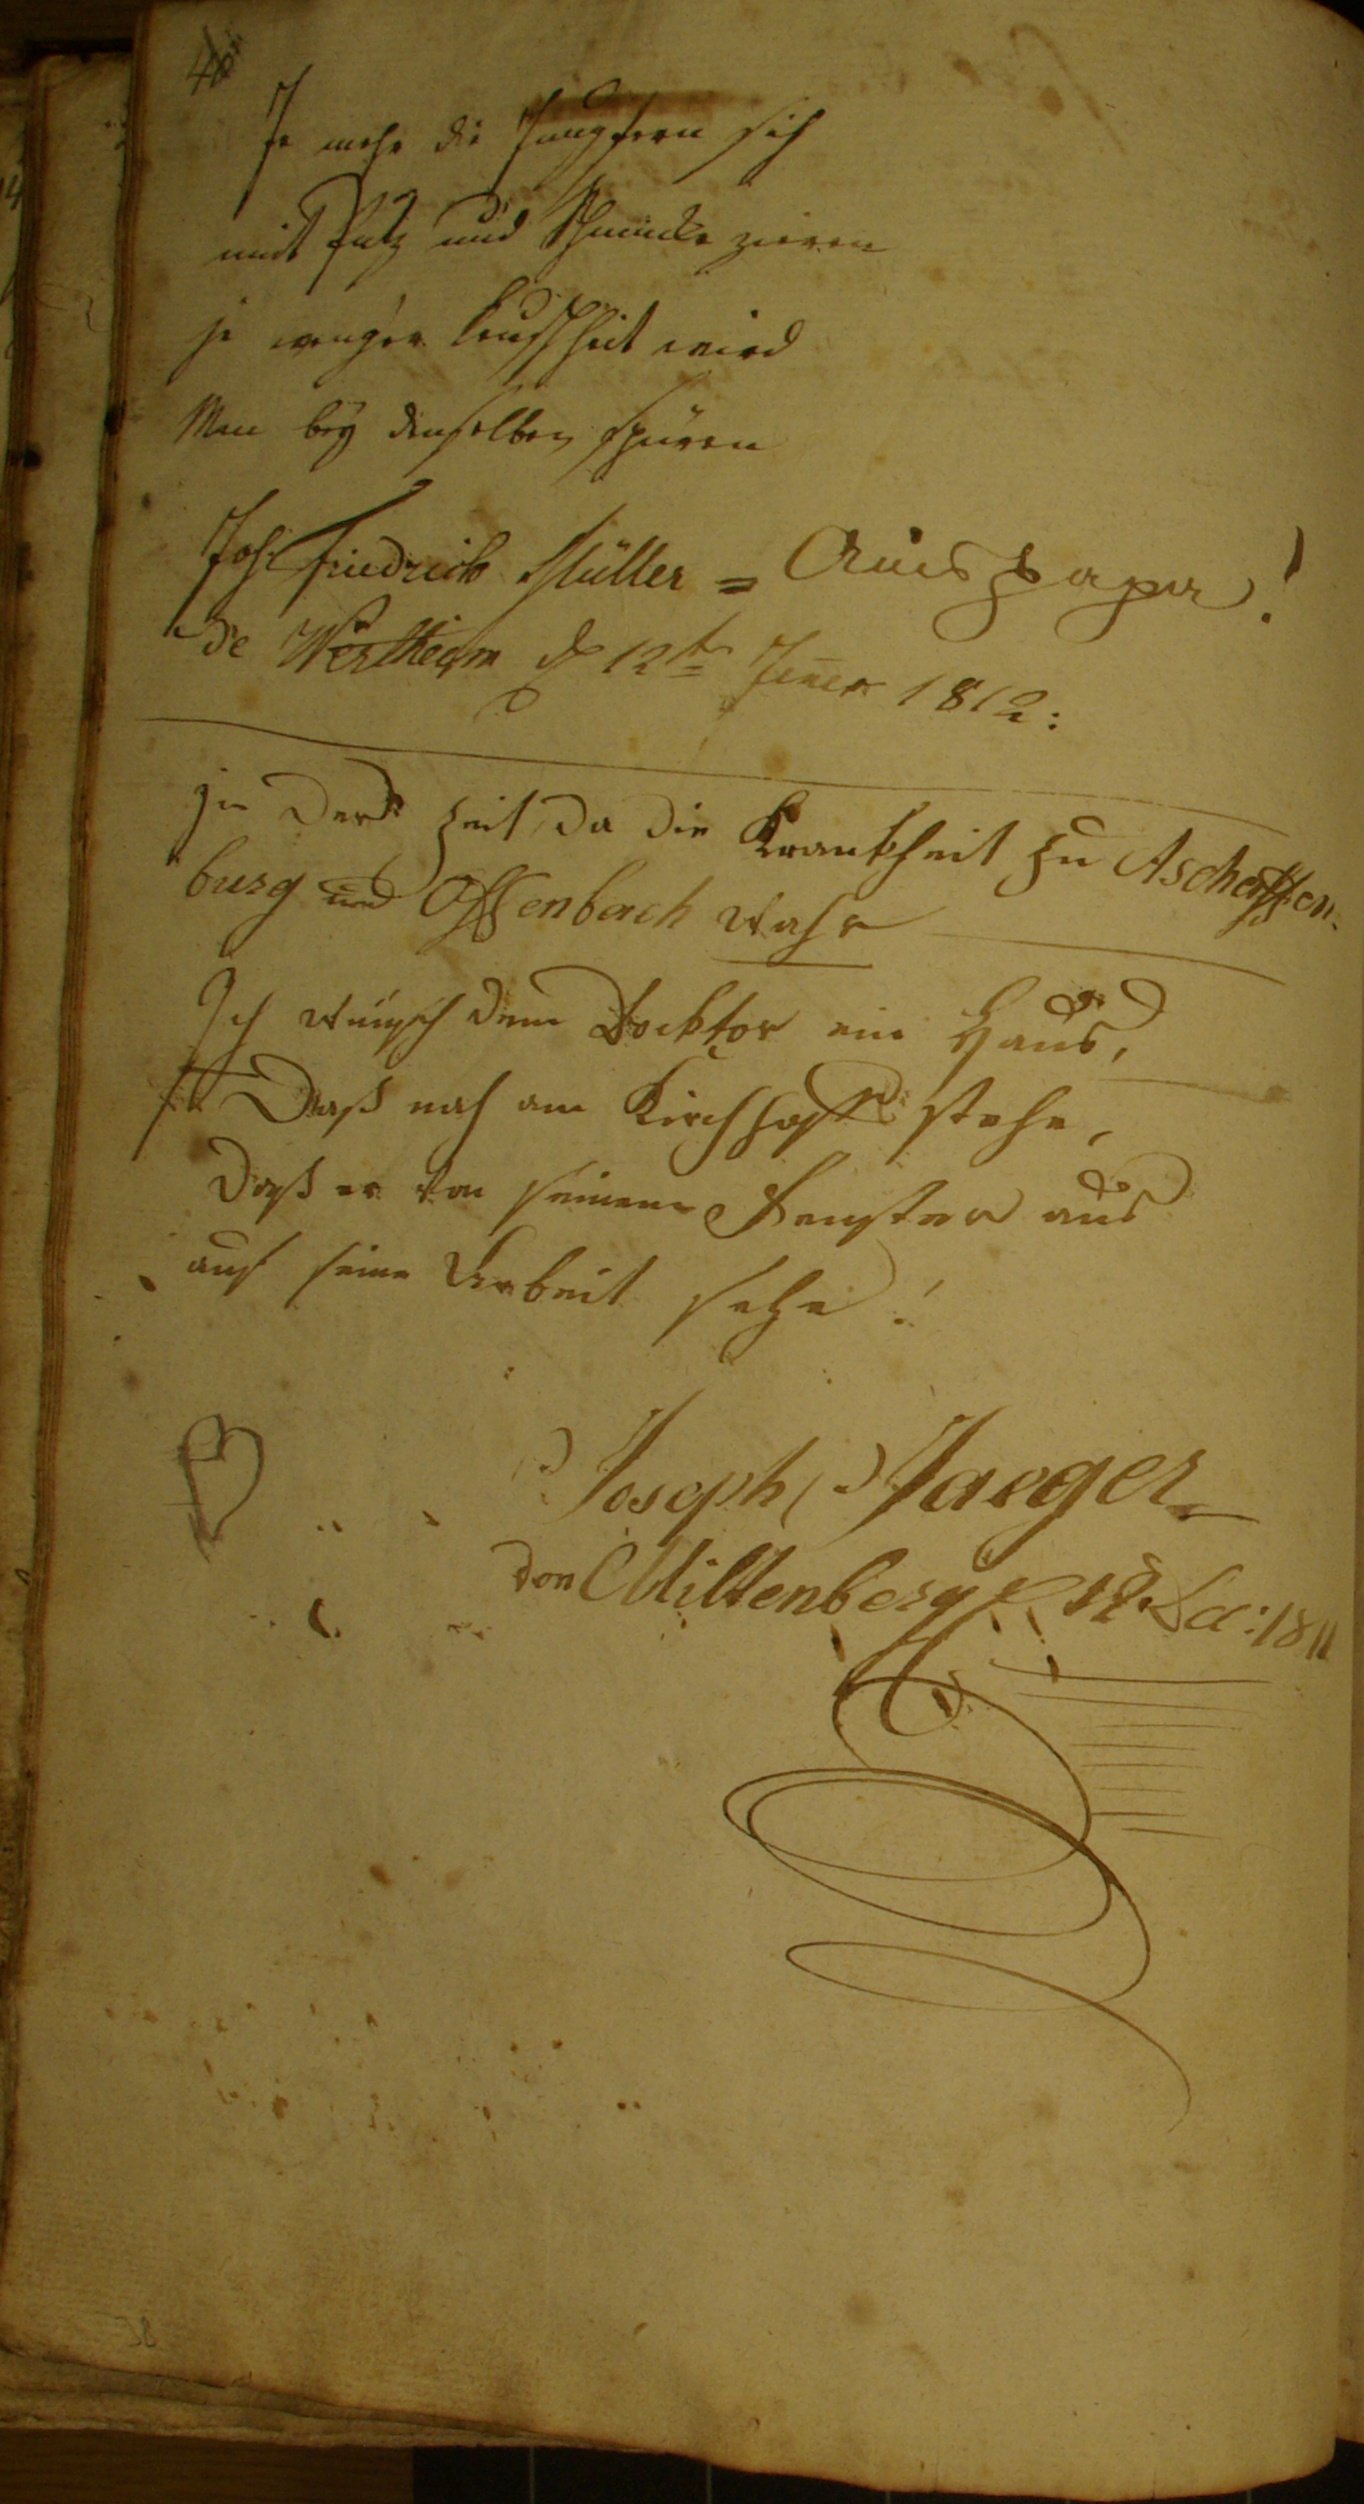 Je mehr die Jungfern sich
mit Putz und Schmincke zieren
je weniger Keuschheit wird
Man beÿ denselben spüren
Joh Friedrich Müller =
de Wertheim d 12t Jener 1812:
Zu Der Zeit, Da die Krankheit zu Aschaffen-
burg und Offenbach wahr
Ich wünsch dem Docktor ein Haus,
Daß nah am Kirchhoff stehe,
Daß er von seinem Fenster aus
auf seine Arbeit sehe!
Joseph Jaeger
von Miltenberg 1811